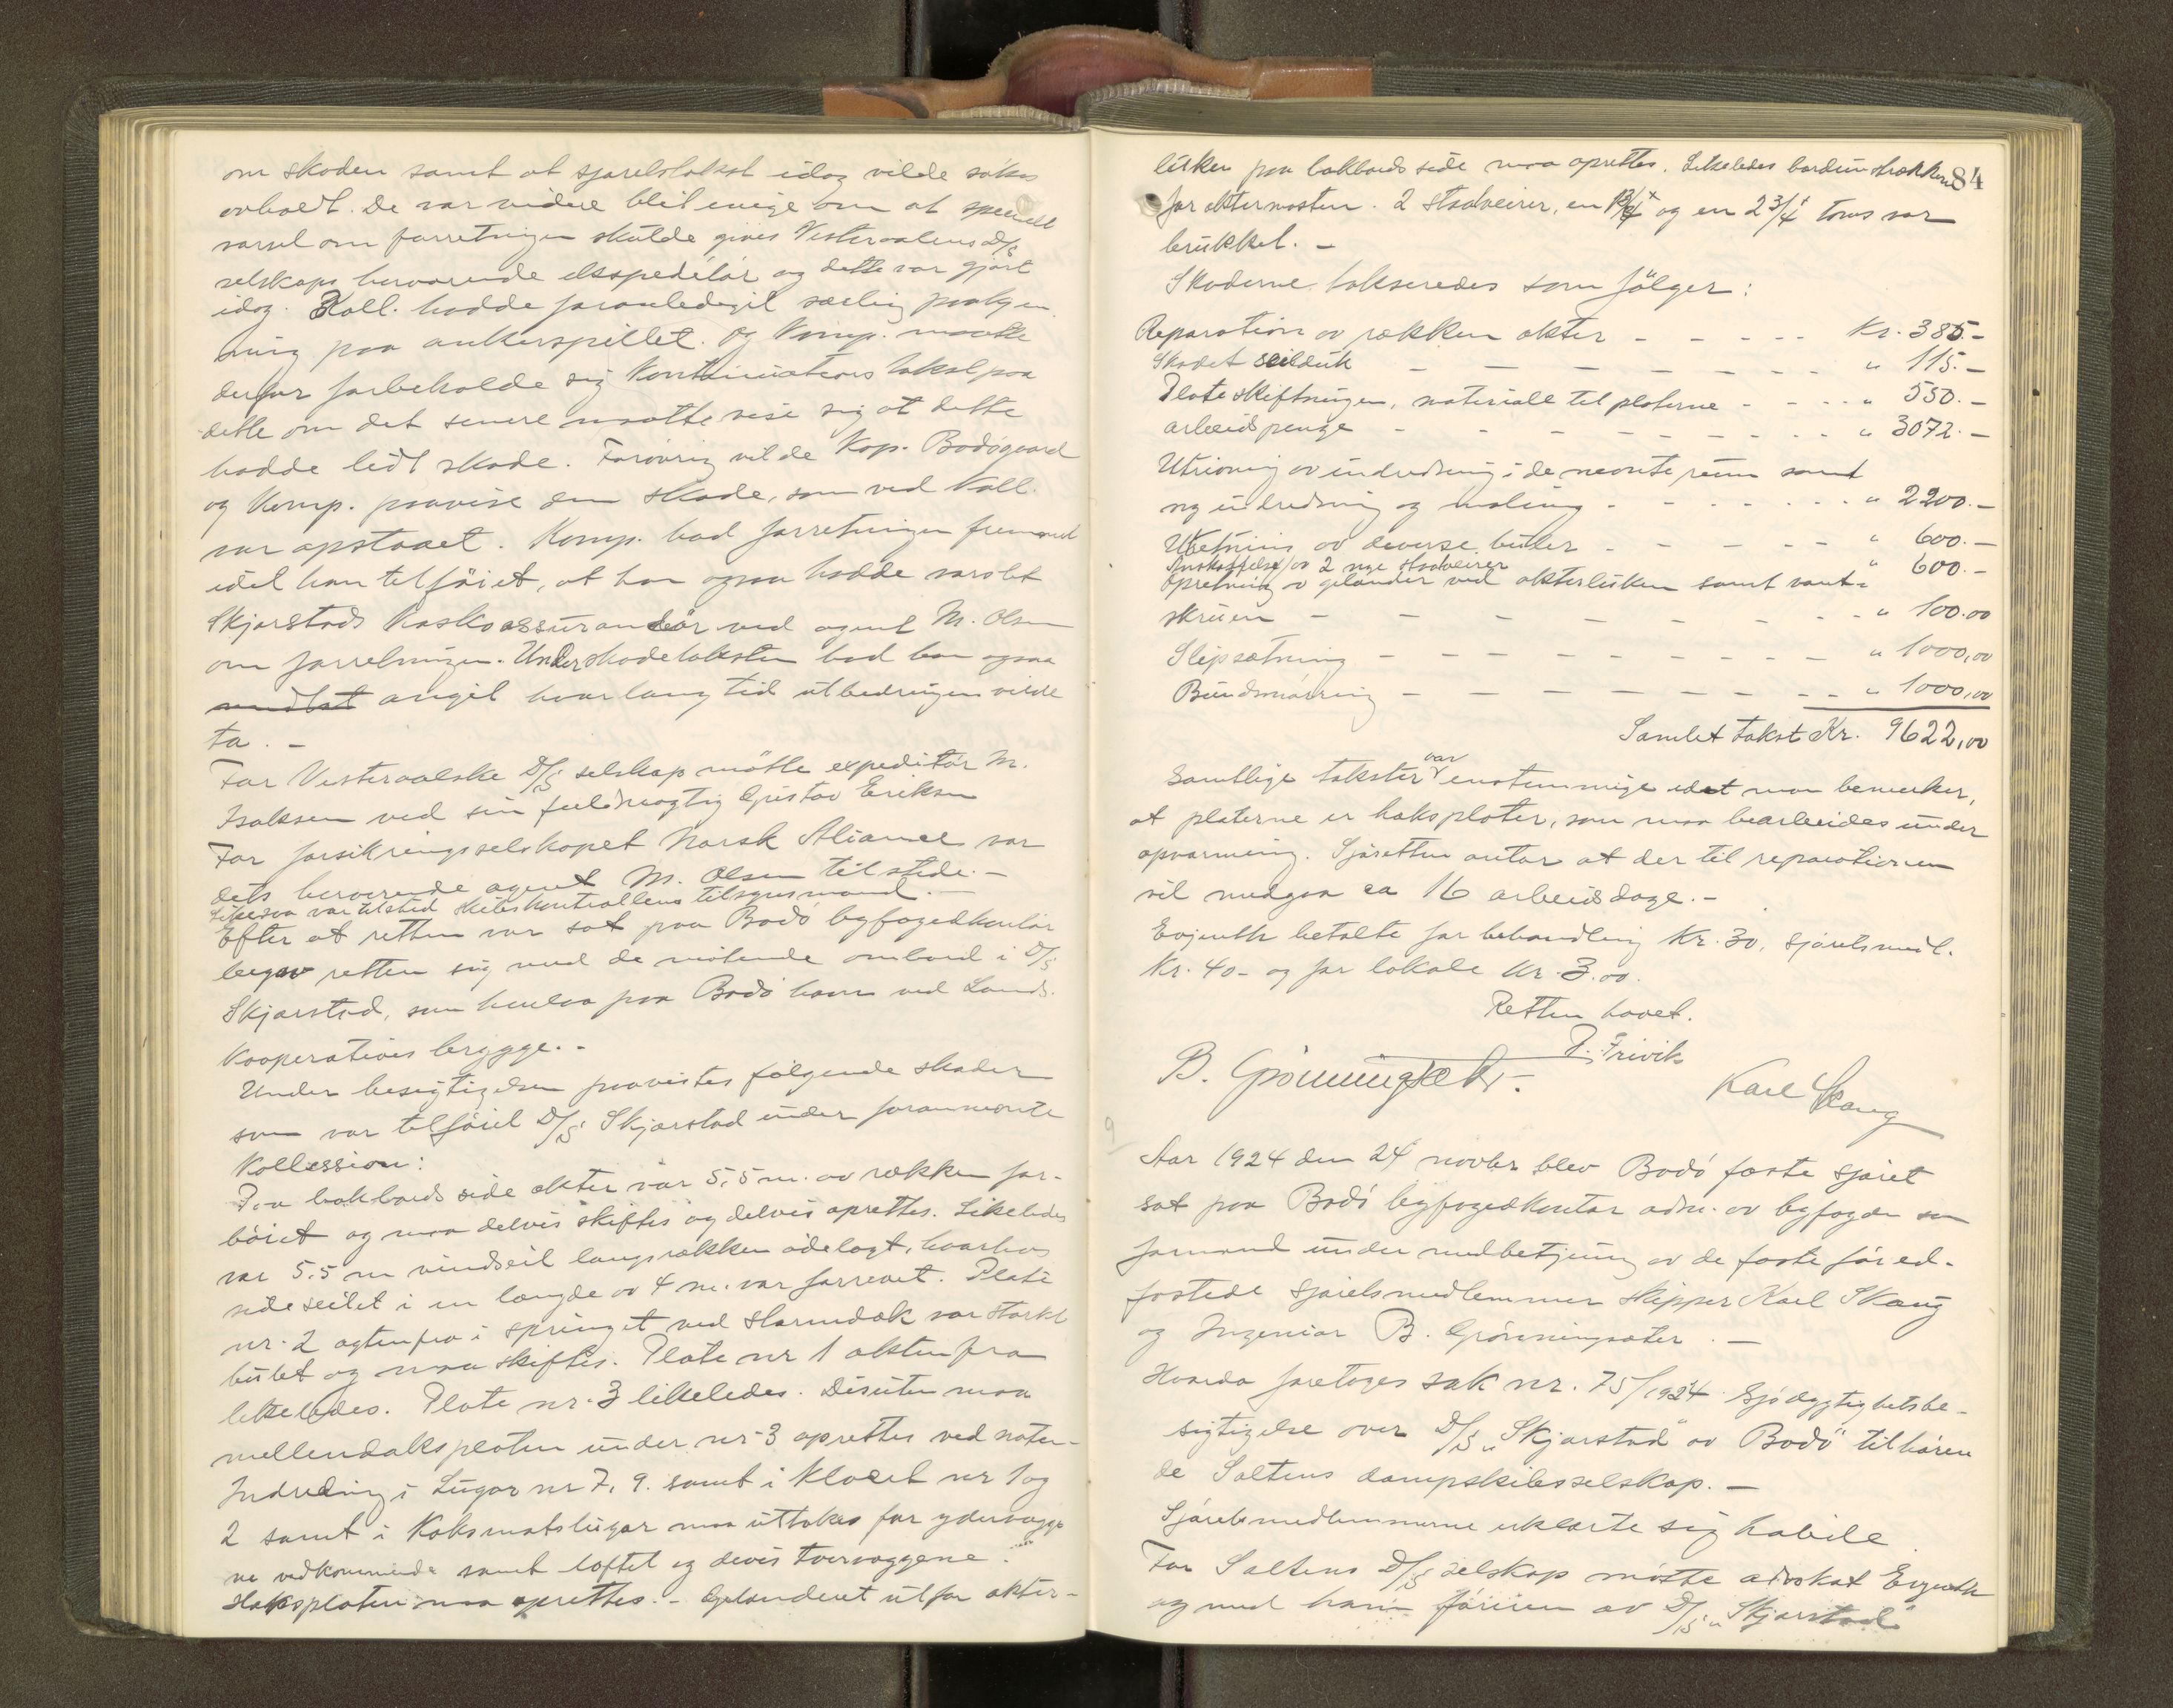 om skaden samt at sjøretstakst idag vilde søkes
avholdt. De var videre blit enige om at speciell
varsel om forretningen skulde gives Vesteraalens D/S
selskaps herværende ekspeditör og dette var gjort
idag. Koll. hadde foranlediget særlig paakjen
ning paa ankerspillet. Og Komp. maatte
derfor forbeholde sig Kontinuations takst paa
dette om det senere maatte vise sig at dette
hadde lidt skade. Forøvrig vilde Kap. Bodøgaard
og Komp. paavise den skade, som ved Koll.
var opstaaet. Komp. bad forretningen fremmed
idet han tilføiet, at han ogsaa hadde varslet
Skjerstads Kaskoassurandör ved agent M. Olsen
om forretningen. Under skadetaksten bad han ogsaa
angit hvor lang tid utbedringen vilde
ta. -
For Vesteraalske D/S selskap møtte expeditör M.
Isaksen ved sin fuldmægtig Gustav Eriksen
For forsikringsselskapet Norsk Aliance var
dets herværende agent M. Olsen tilstede. -
Likesaa var tilsted skibskontrollens tilsynsmand. -
Efter at retten var sat paa Bodø byfogedkontor
begav retten sig med de møtende ombord i D/S
Skjerstad, som henlaa paa Bodø havn ved Lands.
Kooperativs brygge. -
Under besigtigelsen paavistes følgende skader
som var tilføiet D/S Skjerstad under forannævnte
Kollission:
Paa bakbords side akter var 5,5 m. av rækken for-
bøiet og maa delvis skiftes og delvis oprettes. Likeledes
var 5,5 m vindseil langs rækken ødelagt, hvorhos
sideseilet i en længde av 4 m. var forrevet. Plate
nr. 2 agtenfra i springet ved stormdæk var stærkt
bulet og maa skiftes. Plate nr 1 aktenfra
likeledes. Plate nr. 3 likeledes. Desuten maa
mellemdæksplaten under nr 3 oprettes ved nater-
Indreding i Lugar nr 7, 9. samt i Kloset nr 1 og
2 samt i Koksmatslugar maa uttakes for ydervægge
ne vedkommende samt loftet og delvis tvervæggene.
Hæksplaten maa oprettes. - Gelænderet utfor akter-
84
luken paa bakbords side maa oprettes. Likeledes bardunstrækkerne
for aktermasten. 2 staalveirer, en og en 2 3/4" tows var
brukket. -
Skaderne takseredes som følger:
Reparation av rækken akter - - - - - Kr. 385.-
Skadet seilduk - - - - - - - - " 115.-
Plateskiftningen, materiale til platerne - - - - " 550.-
arbeidspenge - - - - - - - - " 3072.-
Utrivning av indredning i de nævnte rum samt
ny indredning og maling - - - - - - - " 2200.-
Utretning av diverse buler - - - - - " 600.-
Anskaffelse av 2 nye staalveirer " 600.-
Opretning av gelænder ved akterluken samt vant-
skruen - - - - - - - - " 100.00
Slipsætning - - - - - - - - - - " 1000,00
Bundsmøring - - - - - - - - " 1000,00
Samlet takst Kr. 9622,00
Samtlige takster var enstemmige idet man bemerker,
at platerne er hæksplater, som maa bearbeides under
opvarming. Sjøretten antar at der til reparationen
vil medgaa ca 16 arbeidsdage. -
Evjenth betalte for behandling Kr. 30, sjøretsmedl.
Kr. 40- og for lokale Kr. 3.00.
Retten hævet.
P. Trivik
B. Grönningsæter.
Karl Skaug
Aar 1924 den 24 novbr blev Bodø faste sjøret
sat paa Bodø byfogedkontor adm. av byfogden som
formand under medbetjening av de faste før ed-
fæstede sjøretsmedlemmer skipper Karl Skaug
og Ingeniør B. Grønningsæter. -
Hvorda foretoges sak nr. 75/1924 Sjødygtighetsbe-
sigtigelse over D/S "Skjerstad" av Bodø" tilhøren
de Saltens dampskibsselskap. -
Sjøretsmedlemmerne erklærte sig habile
For Saltens D/S selskap møtte advokat Evjenth
og med ham føreren av D/S "Skjerstad"